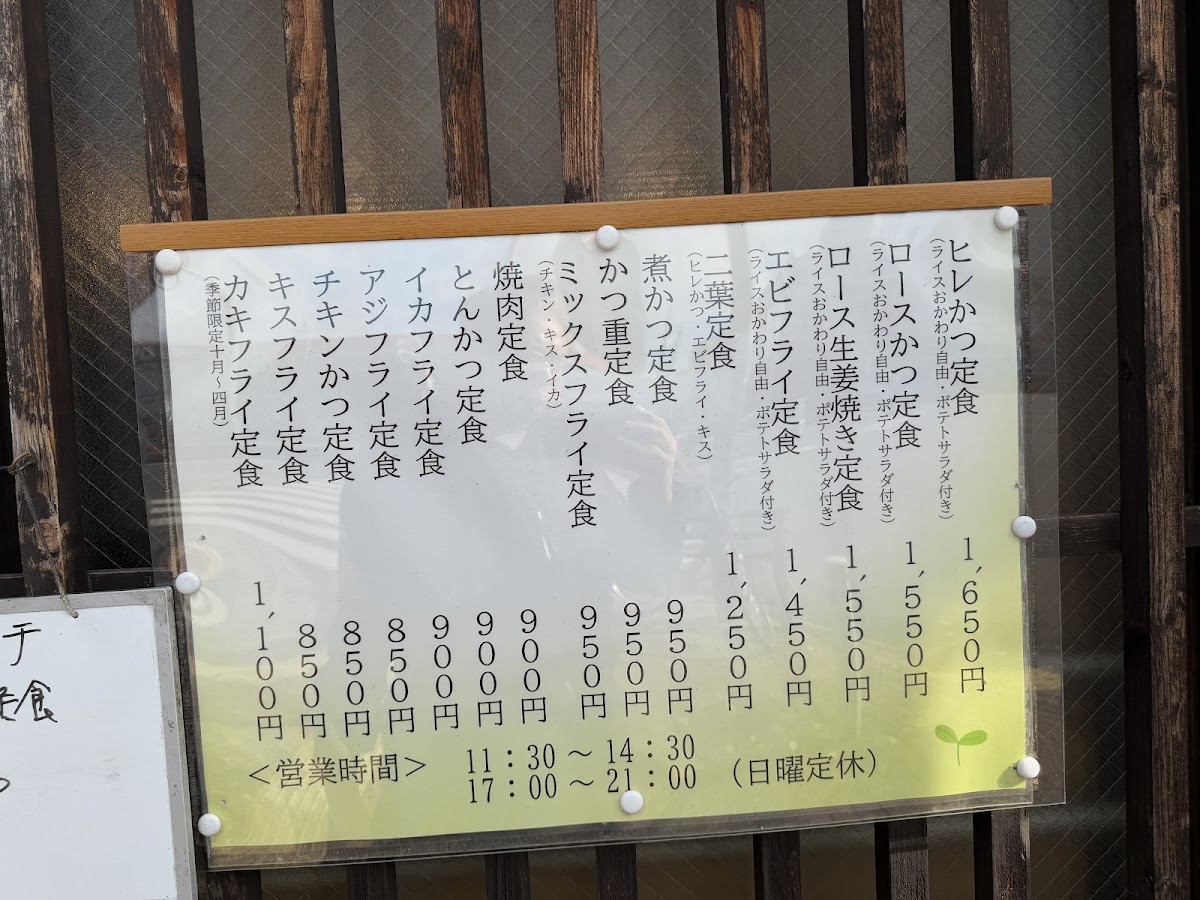 ヒレかつ定食 1,650円
(ライスおかわり自由・ポテトサラダ付き)
ロースかつ定食 1,550円
(ライスおかわり自由・ポテトサラダ付き)
ロース生姜焼き定食 1,550円
(ライスおかわり自由・ポテトサラダ付き)
エビフライ定食 1,450円
(ライスおかわり自由・ポテトサラダ付き)
二葉定食 1,250円
(ヒレかつ・エビフライ・キス)
煮かつ定食 950円
かつ重定食 950円
ミックスフライ定食 950円
(チキン・キス・イカ)
焼肉定食 900円
とんかつ定食 900円
イカフライ定食 900円
アジフライ定食 850円
チキンかつ定食 850円
キスフライ定食 850円
カキフライ定食 1,100円
(季節限定十月~四月)
<営業時間> 11:30~14:30
17:00~21:00 (日曜定休)